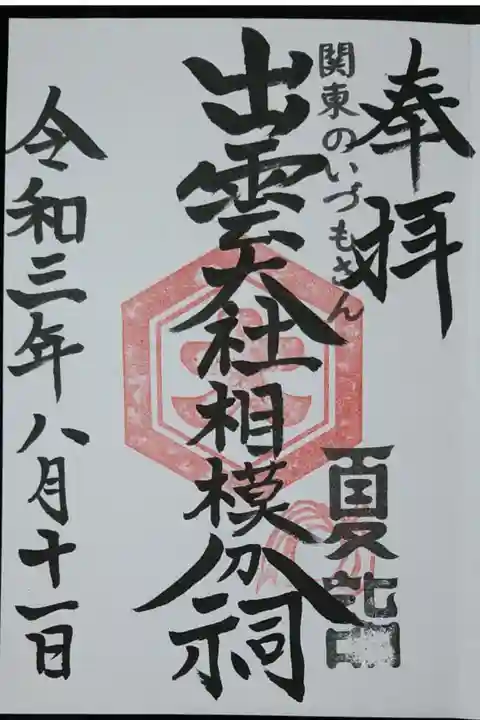 奉拝
関東のいづもさん
夏詣
出雲大社相模分祠
令和三年八月十一日